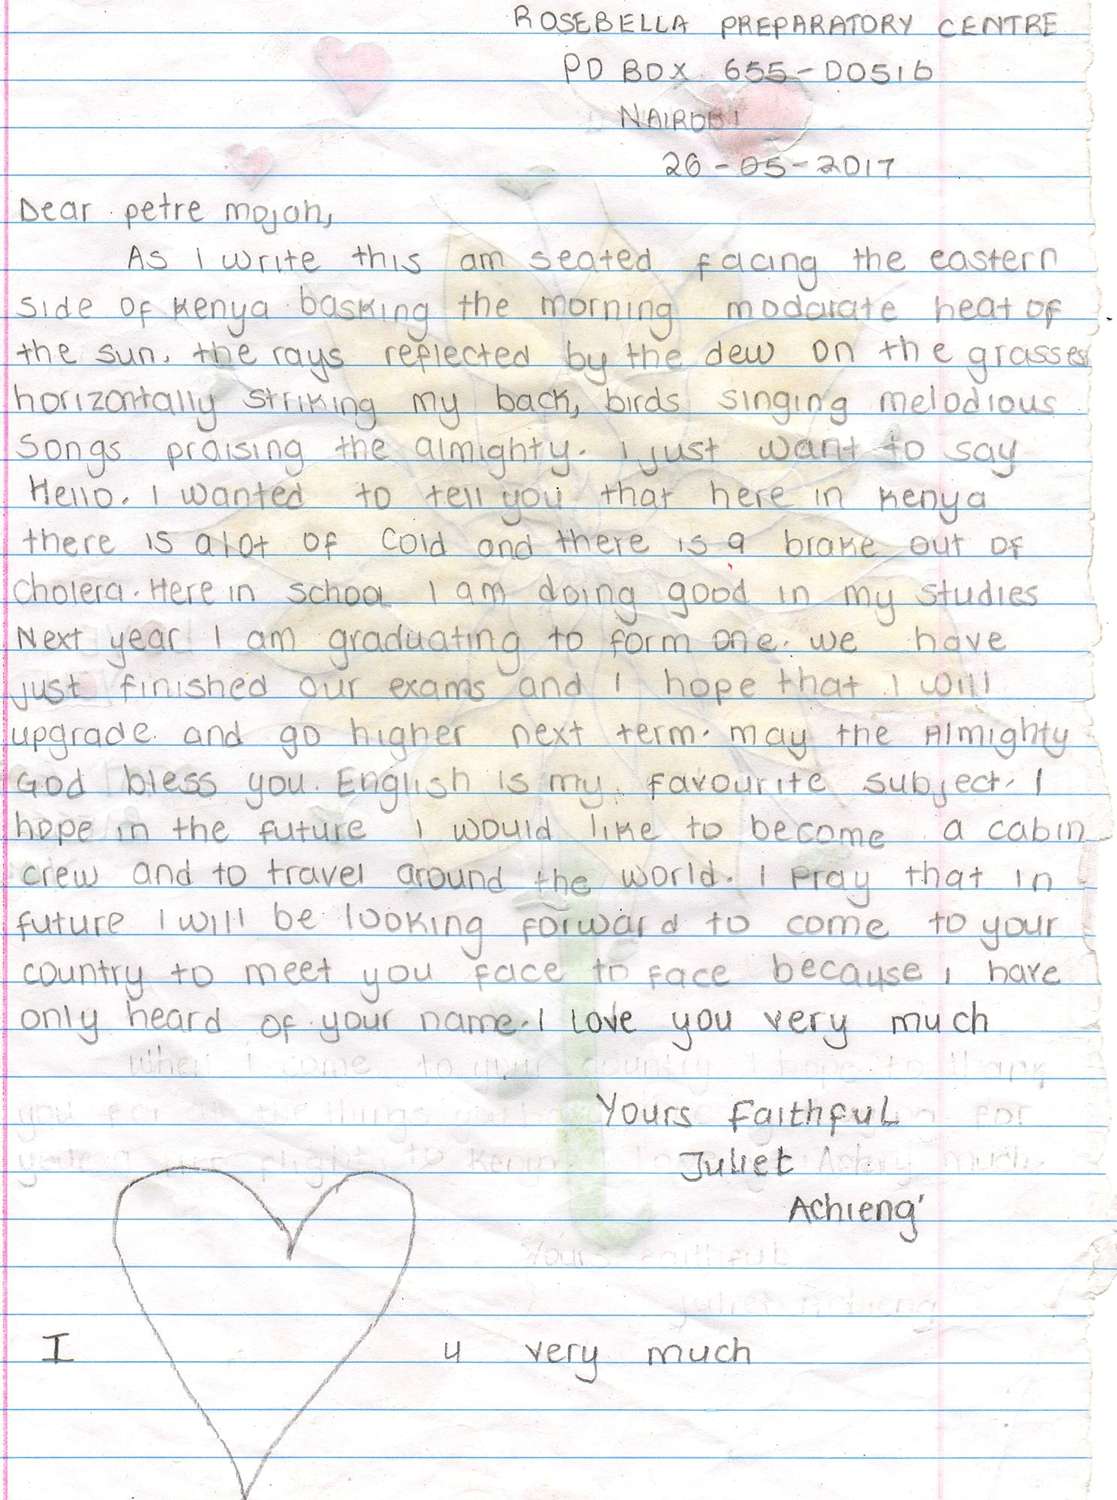 ROSEBELLA PREPARATORY CENTRE
PO BOX 655-00516
NAIROBI
26-05-2017
Dear petre mojah,
As I write this am seated facing the eastern
side of kenya basking the morning modarate heat of
the sun, the rays reflected by the dew on the grasses
horizontally striking my back, birds singing melodious
songs praising the almighty. I just want to say
Hello. I wanted to tell you that here in kenya
there is alot of cold and there is a brake out of
cholera. Here in school I am doing good in my studies
Next year I am graduating to form one. we have
just finished our exams and I hope that I will
upgrade and go higher next term. may the Almighty
God bless you. English is my favourite subject. I
hope in the future I would like to become a cabin
crew and to travel around the world. I pray that in
future I will be looking forward to come to your
country to meet you face to face because I have
only heard of your name. I love you very much
When I come to your country I hope to thank
you for the things for
to kenya much
Yours Faithful
Juliet
Achieng'
I u very much